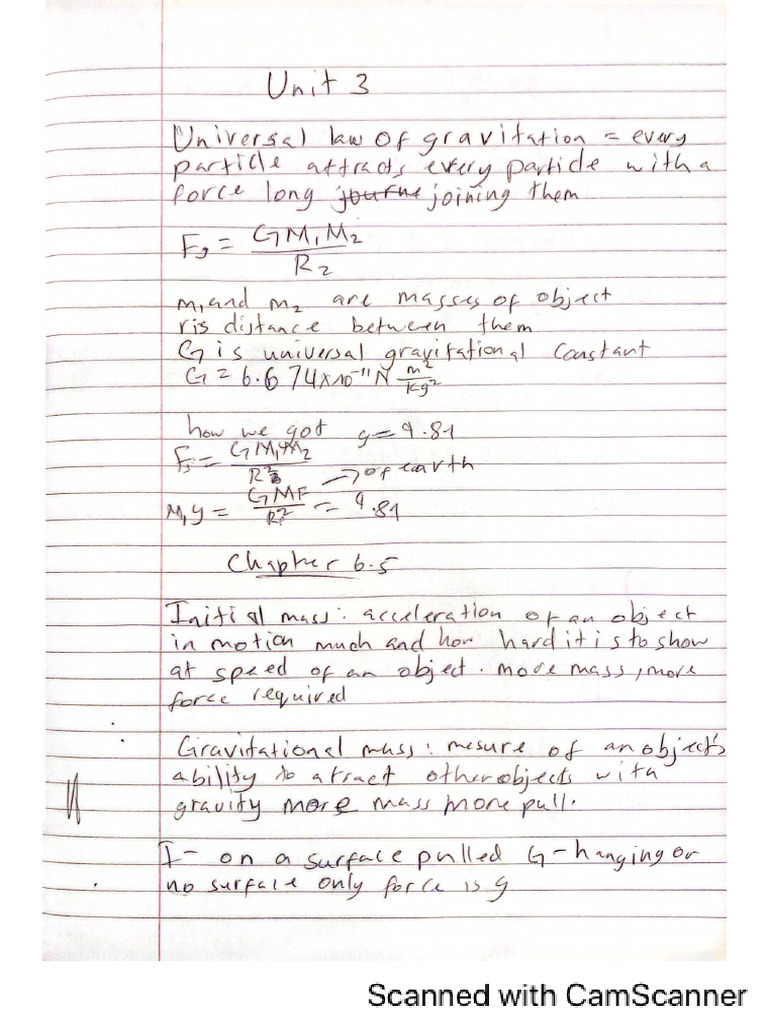 Unit 3
Universal law of gravitation = every
particle attracts every particle with a
force long journe joining them
Fg = GM1M2 / R2
m1 and m2 are masses of object
r is distance between them
G is universal gravitational constant
G = 6.674x10^-11 N m^2/kg^2
how we got g = 9.81
Fg = GM1M2 / R^2
→ of earth
M1g = GME / RE^2 = 9.81
Chapter 6.5
Initial mass: acceleration of an object
in motion much and how hard it is to show
at speed of an object. more mass, more
force required
Gravitational mass: mesure of an object's
ability to atract other objects with
gravity more mass more pull.
I- on a surface pulled G- hanging or
no surface only force is g
Scanned with CamScanner